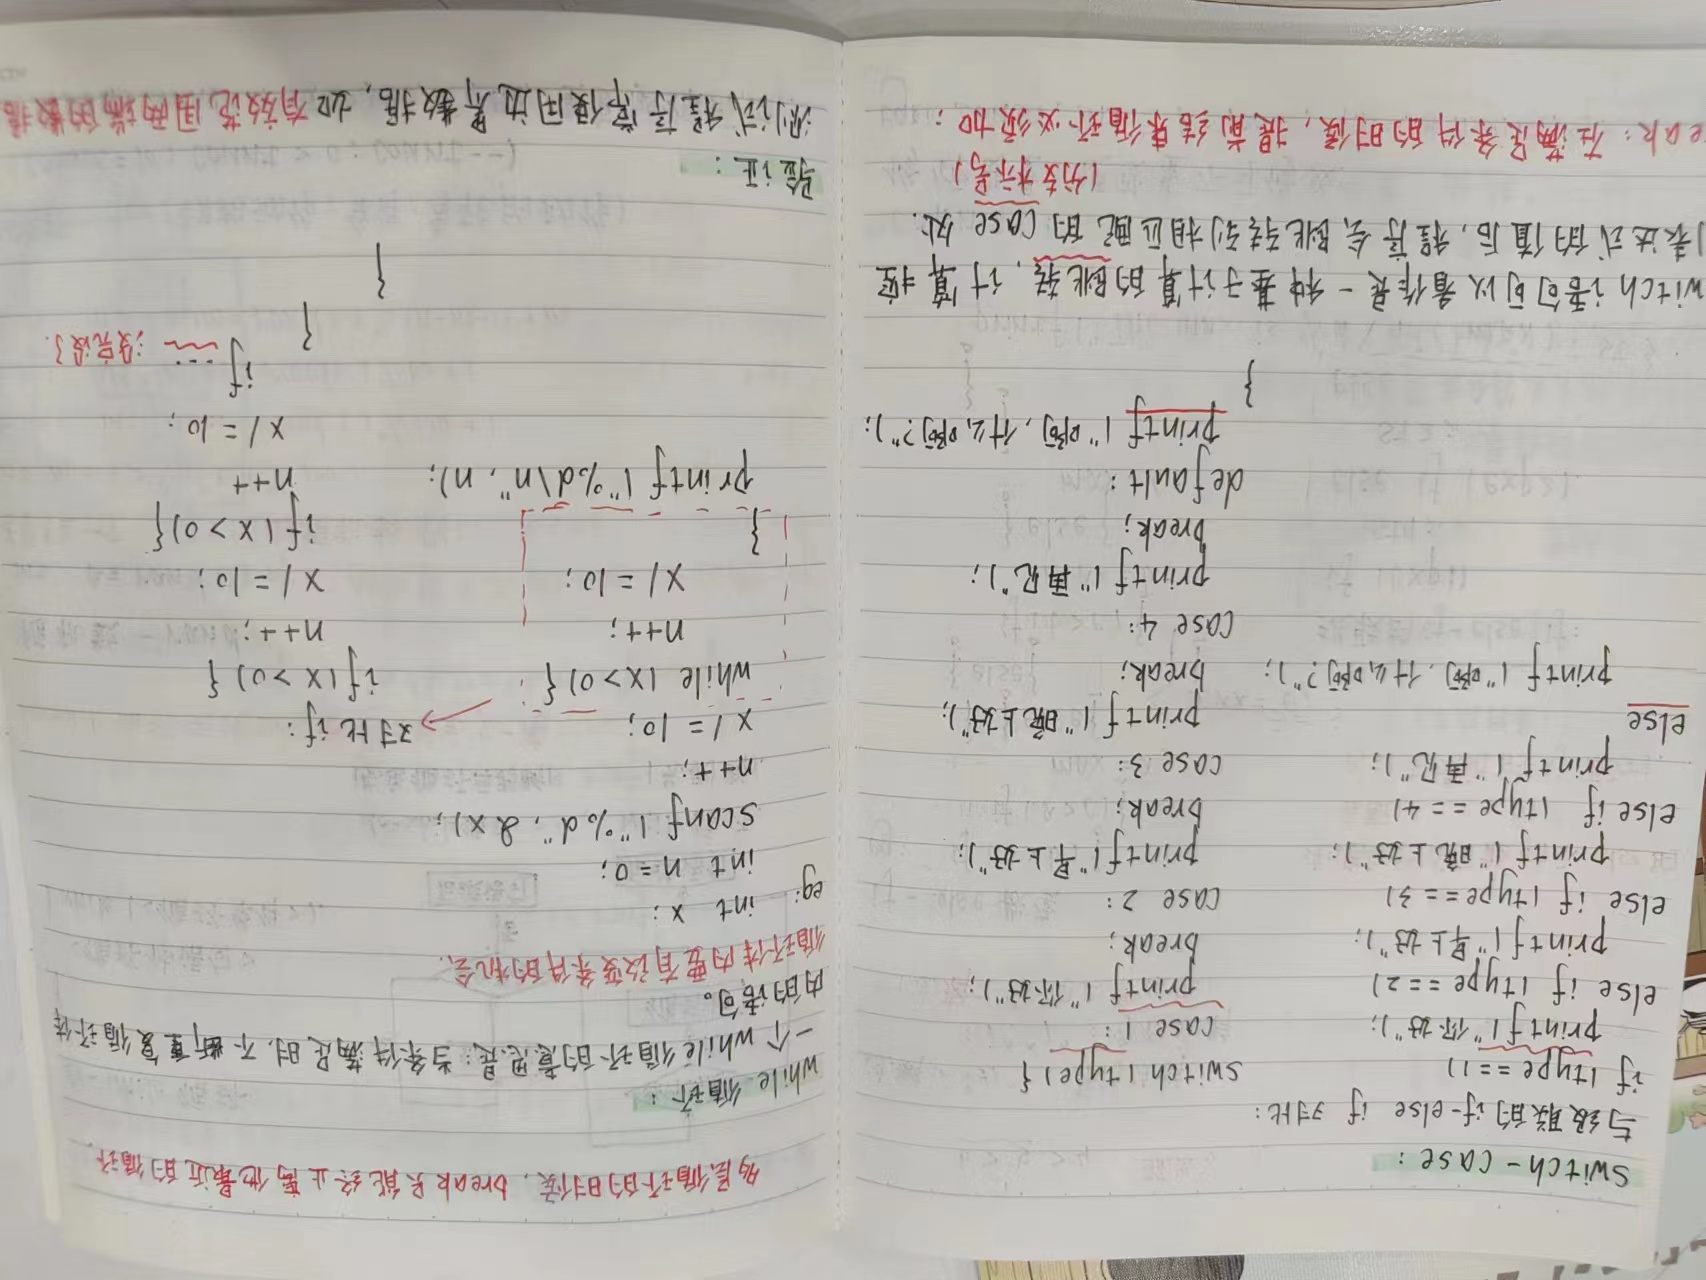 switch-case:
与级联的 if-else if 对比:
if (type ==1)
printf("你好");
else if (type ==2)
printf("早上好");
else if (type ==3)
printf("晚上好");
else if (type ==4)
printf("再见");
else
printf("啊,什么啊?");
switch(type){
case 1:
printf("你好");
break;
case 2:
printf("早上好");
break;
case 3:
printf("晚上好");
break;
case 4:
printf("再见");
break;
default:
printf("啊,什么啊?");
}
witch语句可以看作是一种基于计算的跳转,计算控
表达式的值后,程序会跳转到相匹配的case处.
(分支标号)
eak:在满足条件的时候,提前结束循环必须加;
多层循环的时候,break只能终止离他最近的循环
while循环:
一个while循环的意思是:当条件满足时,不断重复循环体
内的语句。
循环体内要有改变条件的机会.
eg: int x;
int n=0;
scanf("%d", &x);
n++;
x /= 10;
while (x>0) {
n++;
x /= 10;
}
printf("%d\n", n);
对比 if:
if(x>0) {
n++;
x /= 10;
if(x>0){
n++
x /= 10;
if ... 没完没了.
}
}
验证:
测试程序常使用边界数据,如 有效范围两端的数据